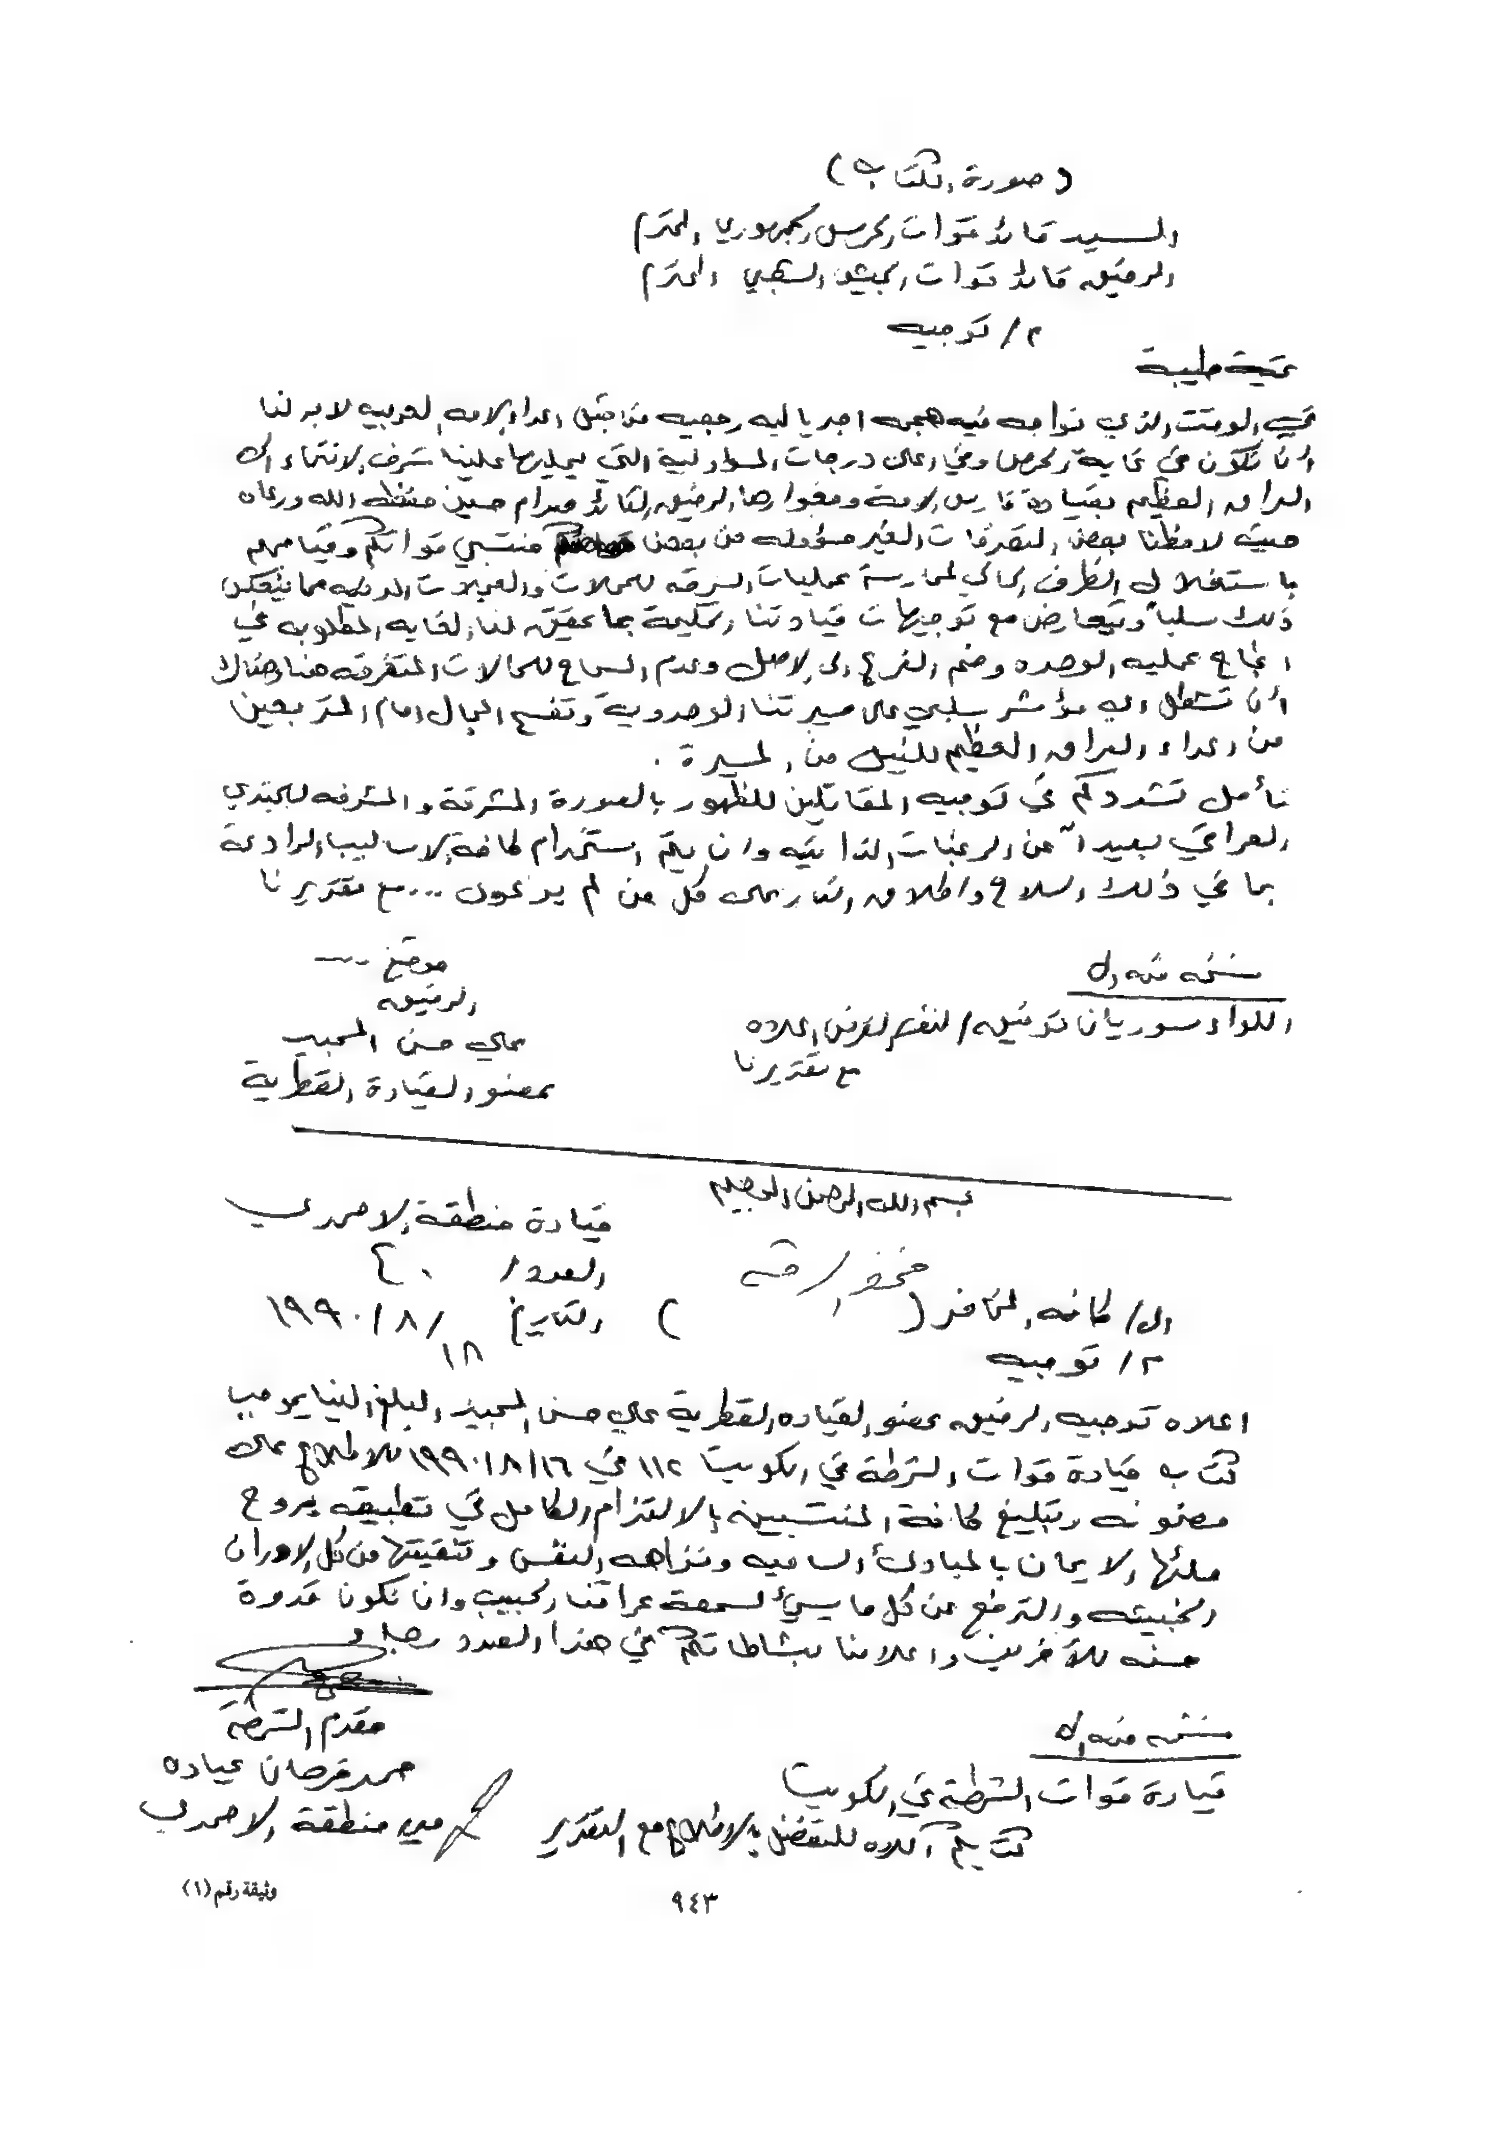 (صورة الكتاب)
السيد قائد قوات الحرس الجمهوري المحترم
الرفيق قائد قوات الجيش الشعبي المحترم
م/ توجيه
تحية طيبة
في الوقت الذي نواجه فيه هجمه امبرياليه رجعيه من قبل اعداء الامه العربيه لابد لنا
أن نكون في غاية الحرص وفي اعلى درجات المسؤولية التي يمليها علينا شرف الانتماء الى
العراق العظيم بقيادة فارس الامة ومغوارها الرفيق القائد صدام حسين حفظه الله ورعاه
حيث لاحظنا بعض التصرفات الغير مسؤوله من بعض منتسبي قواتكم وقيامهم
باستغلال الظرف الحالي لممارسة عمليات السرقه للمحلات والعجلات المدنيه مما ينعكس
ذلك سلباً ويتعارض مع توجيهات قيادتنا الحكيمة بما يحقق لنا الغايه المطلوبه في
انجاح عمليه الوحده وضم الفرع الى الاصل وعدم السماح للحالات المتفرقه هنا وهناك
أن تشكل اي مؤشر سلبي على مسيرتنا الوحدوية وتفسح المجال امام المتربصين
من اعداء العراق العظيم للنيل من المسيرة .
نأمل تشددكم في توجيه المقاتلين للظهور بالصورة المشرقة والمشرفه للجندي
العراقي بعيداً عن الرغبات الذاتيه وان يتم استخدام كافة الاساليب الرادعة
بما في ذلك السلاح واطلاق النار على كل من لم يرعوي ... مع تقديرنا
نسخه منه الى
موقع ...
الرفيق
اللواء سوريان توفيق/ لنفس الغرض اعلاه
علي حسن المجيد
مع تقديرنا
عضو القيادة القطرية
بسم الله الرحمن الرحيم
قيادة منطقة الاحمدي
العدد/ ٤٠
الى/ كافه المخافر (مخفر الرقة)
التاريخ ١٨/ ٨/ ١٩٩٠
م/ توجيه
اعلاه توجيه الرفيق عضو القياده القطرية علي حسن المجيد المبلغ الينا بموجب
كتاب قيادة قوات الشرطة في الكويت ١١٢ في ١٦/ ٨/ ١٩٩٠ للاطلاع على
مضمونه وتبليغ كافة المنتسبين بالالتزام الكامل في تطبيقه بروح
ملئها الايمان بالمبادئ الساميه ونزاهه النفس وتنقيتها من كل الادران
الخبيثه والترفع عن كل ما يسيئ لسمعة عراقنا الحبيب وان نكون قدوة
حسنه للآخرين واعلامنا نشاطاتكم في هذا الصدد رجاء
نسخه منه الى
مقدم الشرطة
حمد فرحان عياده
قيادة قوات الشرطة في الكويت
مدير منطقة الاحمدي
كتابكم اعلاه للتفضل بالاطلاع مع التقدير
وثيقة رقم (١)
٩٤٣